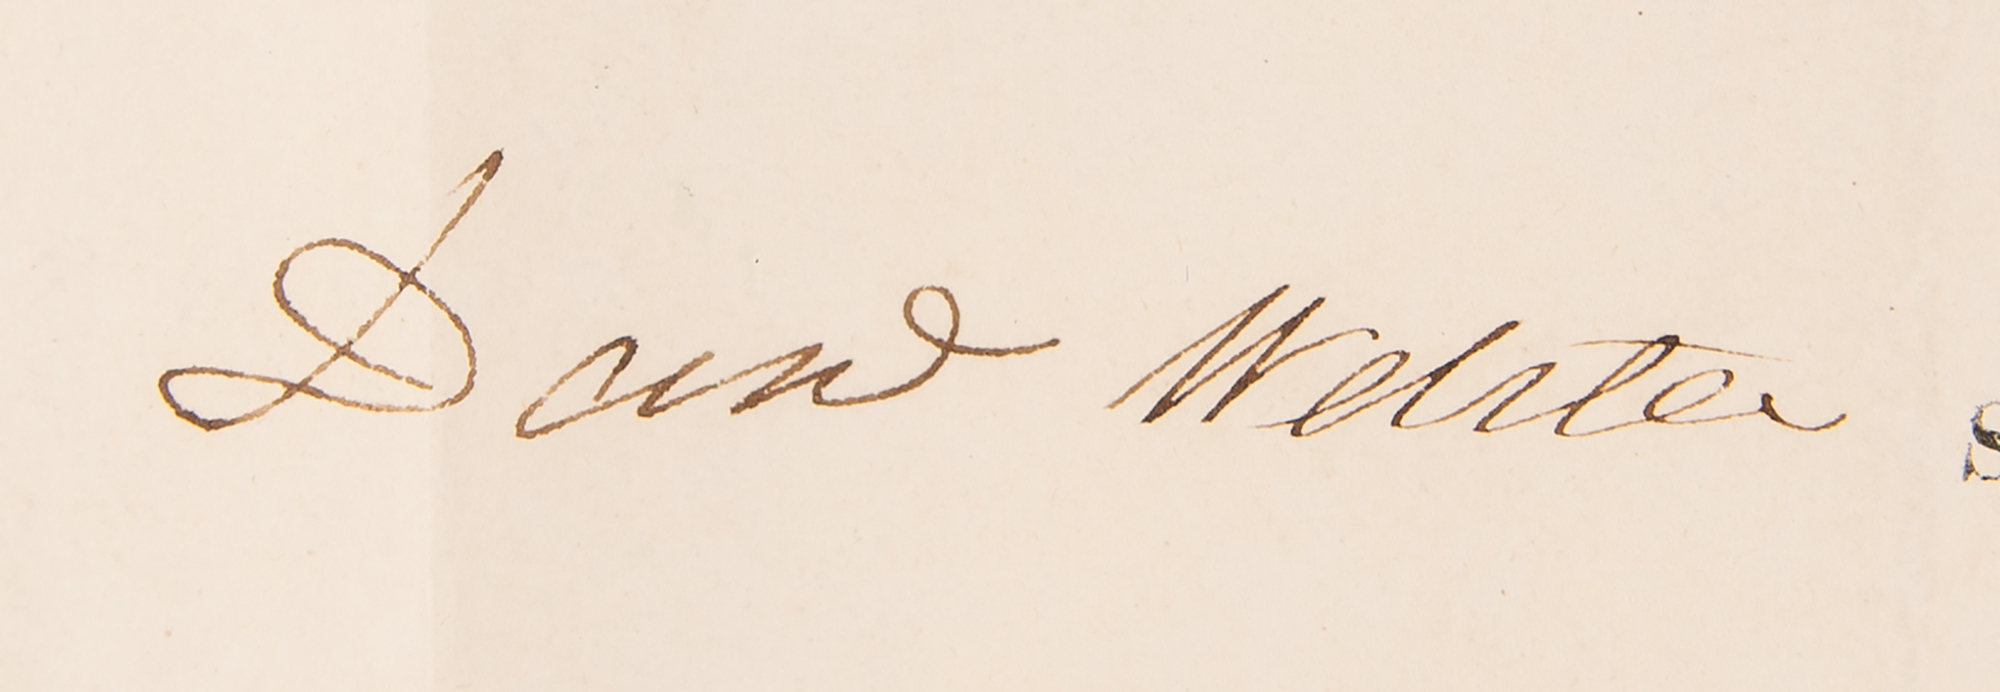 Danl Webster S